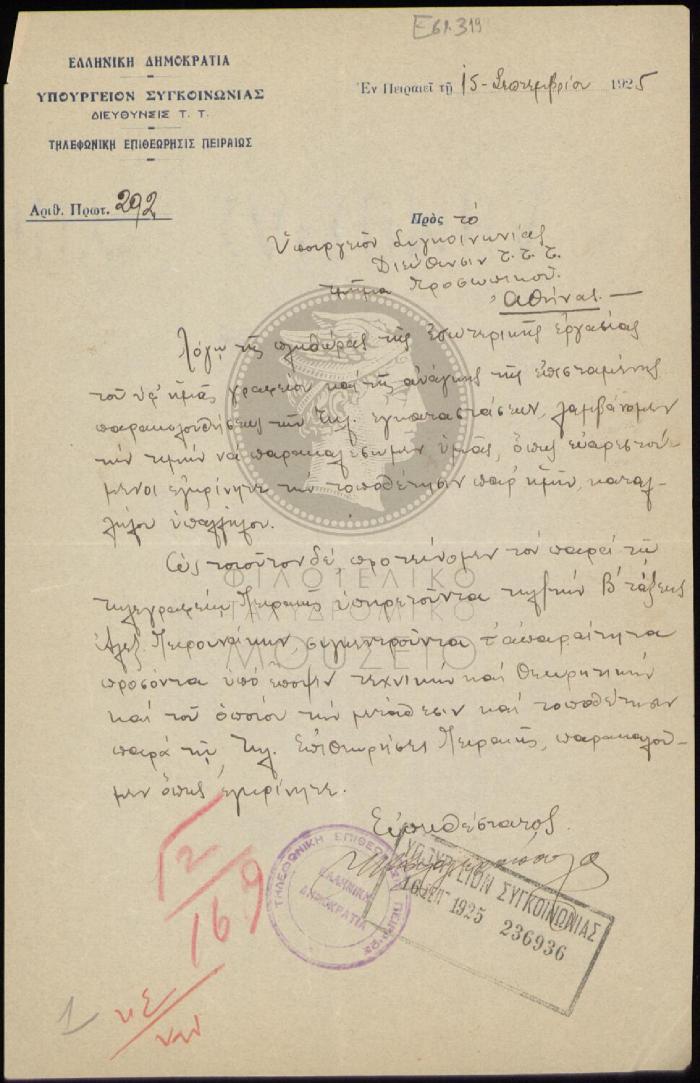 Ε61.319
ΕΛΛΗΝΙΚΗ ΔΗΜΟΚΡΑΤΙΑ
ΥΠΟΥΡΓΕΙΟΝ ΣΥΓΚΟΙΝΩΝΙΑΣ
ΔΙΕΥΘΥΝΣΙΣ Τ. Τ.
ΤΗΛΕΦΩΝΙΚΗ ΕΠΙΘΕΩΡΗΣΙΣ ΠΕΙΡΑΙΩΣ
Ἐν Πειραιεῖ τῇ 15 - Σεπτεμβρίου 1925
Ἀριθ. Πρωτ. 292
Πρὸς τὸ
Ὑπουργεῖον Συγκοινωνίας
Διεύθυνσιν Τ.Τ.Τ.
Τμῆμα Προσωπικοῦ.
Ἀθήνας. —
Λόγῳ τῆς πληθώρας τῆς ἐσωτερικῆς ἐργασίας
τοῦ ὑφ' ἡμᾶς γραφείου καὶ τῆς ἀνάγκης τῆς ἐπισταμένης
παρακολουθήσεως τῶν Τηλ. ἐγκαταστάσεων, λαμβάνομεν
τὴν τιμὴν νὰ παρακαλέσωμεν ὑμᾶς, ὅπως εὐαρεστού-
μενοι ἐγκρίνητε τὴν τοποθέτησιν παρ' ἡμῖν, καταλ-
λήλου ὑπαλλήλου.
Ὡς τοιοῦτον δέ, προτείνομεν τὸν παρὰ τῷ
τηλεγραφείῳ Πειραιῶς ὑπηρετοῦντα τηλ/τὴν Β' τάξεως
Ἀλέξ. συγκεντροῦντα τ' ἀπαραίτητα
προσόντα ὑπὸ ἔποψιν τεχνικὴν καὶ θεωρητικὴν
καὶ τοῦ ὁποίου τὴν μετάθεσιν καὶ τοποθέτησιν
παρὰ τῇ Τηλ. Ἐπιθεωρήσει Πειραιῶς, παρακαλοῦ-
μεν ὅπως ἐγκρίνητε.
Εὐπειθέστατος
ΤΗΛΕΦΩΝΙΚΗ ΕΠΙΘΕΩΡΗΣΙΣ ΠΕΙΡΑΙΩΣ
ΕΛΛΗΝΙΚΗ
ΔΗΜΟΚΡΑΤΙΑ
ΥΠΟΥΡΓΕΙΟΝ ΣΥΓΚΟΙΝΩΝΙΑΣ
16 ΣΕΠ 1925 236936
ΦΙΛΟΤΕΛΙΚΟ
ΤΑΧΥΔΡΟΜΙΚΟ
ΜΟΥΣΕΙΟ
169
1